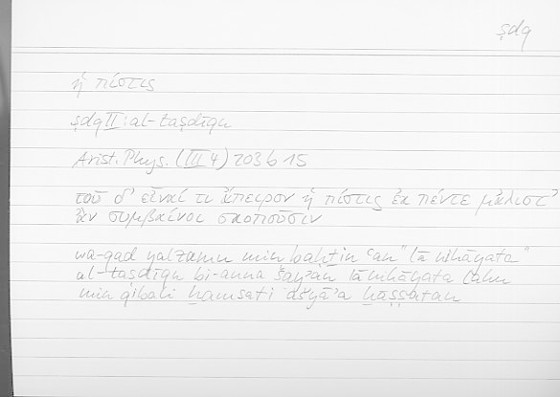 ṣdq
ἡ πίστις
ṣdq II: al-taṣdīqu
Arist. Phys. (III 4) 203 b 15
τοῦ δ’ εἶναί τι ἄπειρον ἡ πίστις ἐκ πέντε μάλιστ’
ἂν συμβαίνοι σκοποῦσιν
wa-qad yalzamu min baḥṯin ʿan “lā nihāyata”
al-taṣdīqu bi-anna šayʾan lā nihāyata lahu
min qibali ḫamsati ašyāʾa ḫāṣṣatan